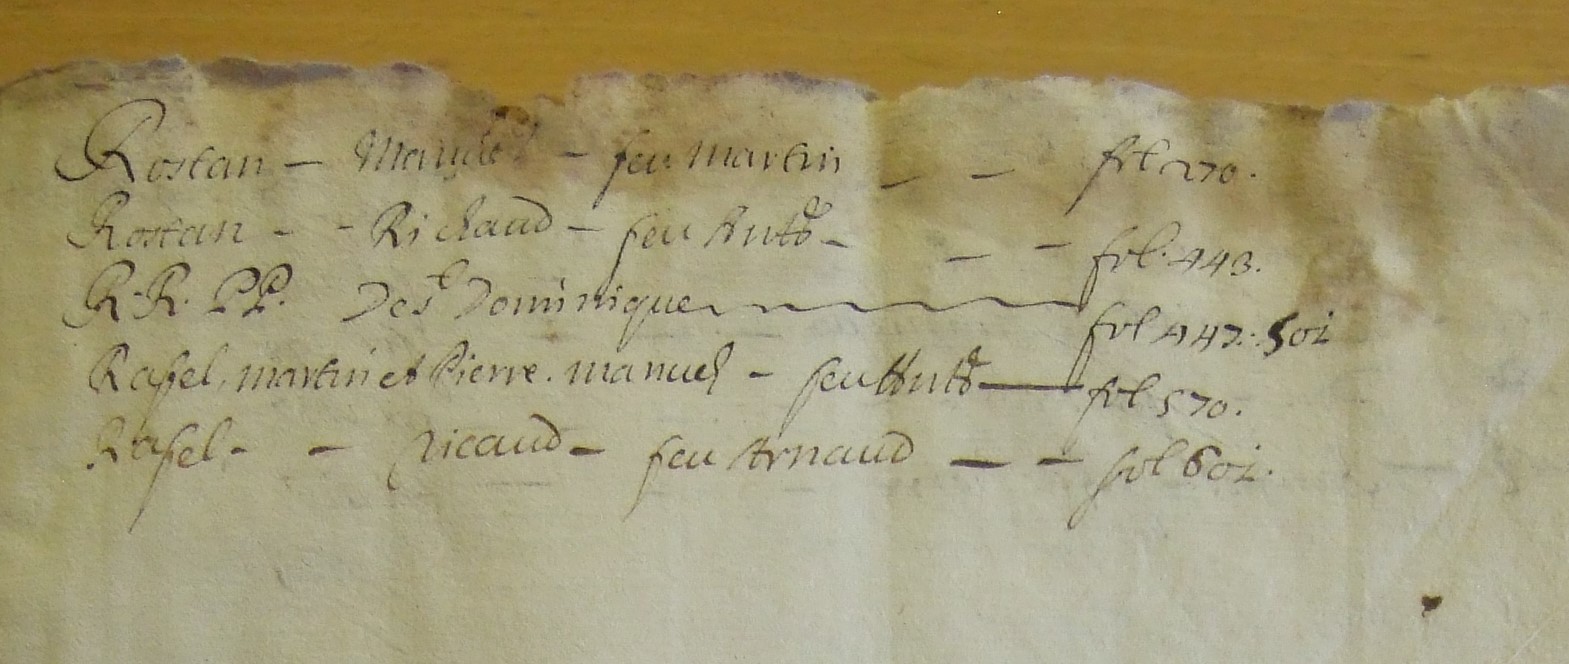 Rostan - Manuel - feu martin - - fol 270.
Rostan - - Richaud - feu Antð - - - fol. 443.
R. R. PP. De st Dominique fol 447. 501
Rafel, martin et Pierre. manuel - feu Antð - fol 570.
Rafel - - Ricaud - feu Arnaud - - fol 601.